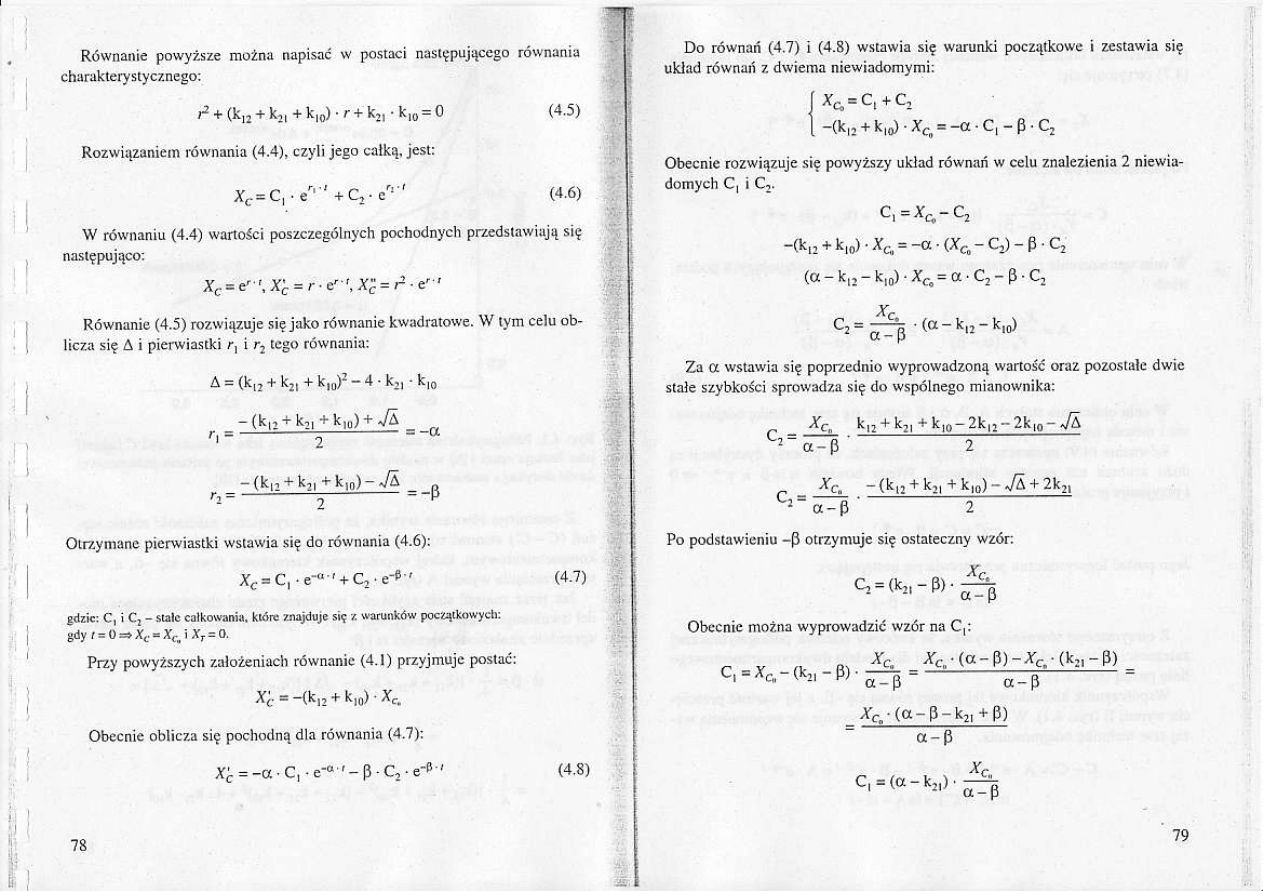 Równanie powyższe można napisać w postaci następującego równania
charakterystycznego:
r² + (k₁₂ + k₂₁ + k₁₀) · r + k₂₁ · k₁₀ = 0 (4.5)
Rozwiązaniem równania (4.4), czyli jego całką, jest:
X_C = C₁ · e^(r₁ · t) + C₂ · e^(r₂ · t) (4.6)
W równaniu (4.4) wartości poszczególnych pochodnych przedstawiają się
następująco:
X_C = e^(r · t), X'_C = r · e^(r · t), X''_C = r² · e^(r · t)
Równanie (4.5) rozwiązuje się jako równanie kwadratowe. W tym celu ob-
licza się Δ i pierwiastki r₁ i r₂ tego równania:
Δ = (k₁₂ + k₂₁ + k₁₀)² – 4 · k₂₁ · k₁₀
r₁ = (– (k₁₂ + k₂₁ + k₁₀) + √Δ) / 2 = –α
r₂ = (– (k₁₂ + k₂₁ + k₁₀) – √Δ) / 2 = –β
Otrzymane pierwiastki wstawia się do równania (4.6):
X_C = C₁ · e^(–α · t) + C₂ · e^(–β · t) (4.7)
gdzie: C₁ i C₂ – stałe całkowania, które znajduje się z warunków początkowych:
gdy t = 0 ⇒ X_C = X_C₀ i X_T = 0.
Przy powyższych założeniach równanie (4.1) przyjmuje postać:
X'_C = –(k₁₂ + k₁₀) · X_C₀
Obecnie oblicza się pochodną dla równania (4.7):
X'_C = –α · C₁ · e^(–α · t) – β · C₂ · e^(–β · t) (4.8)
78
Do równań (4.7) i (4.8) wstawia się warunki początkowe i zestawia się
układ równań z dwiema niewiadomymi:
{ X_C₀ = C₁ + C₂
–(k₁₂ + k₁₀) · X_C₀ = –α · C₁ – β · C₂
Obecnie rozwiązuje się powyższy układ równań w celu znalezienia 2 niewia-
domych C₁ i C₂.
C₁ = X_C₀ – C₂
–(k₁₂ + k₁₀) · X_C₀ = –α · (X_C₀ – C₂) – β · C₂
(α – k₁₂ – k₁₀) · X_C₀ = α · C₂ – β · C₂
C₂ = X_C₀ / (α – β) · (α – k₁₂ – k₁₀)
Za α wstawia się poprzednio wyprowadzoną wartość oraz pozostałe dwie
stałe szybkości sprowadza się do wspólnego mianownika:
C₂ = X_C₀ / (α – β) · (k₁₂ + k₂₁ + k₁₀ – 2k₁₂ – 2k₁₀ – √Δ) / 2
C₂ = X_C₀ / (α – β) · (– (k₁₂ + k₂₁ + k₁₀) – √Δ + 2k₂₁) / 2
Po podstawieniu –β otrzymuje się ostateczny wzór:
C₂ = (k₂₁ – β) · X_C₀ / (α – β)
Obecnie można wyprowadzić wzór na C₁:
C₁ = X_C₀ – (k₂₁ – β) · X_C₀ / (α – β) = (X_C₀ · (α – β) – X_C₀ · (k₂₁ – β)) / (α – β) =
= (X_C₀ · (α – β – k₂₁ + β)) / (α – β)
C₁ = (α – k₂₁) · X_C₀ / (α – β)
79